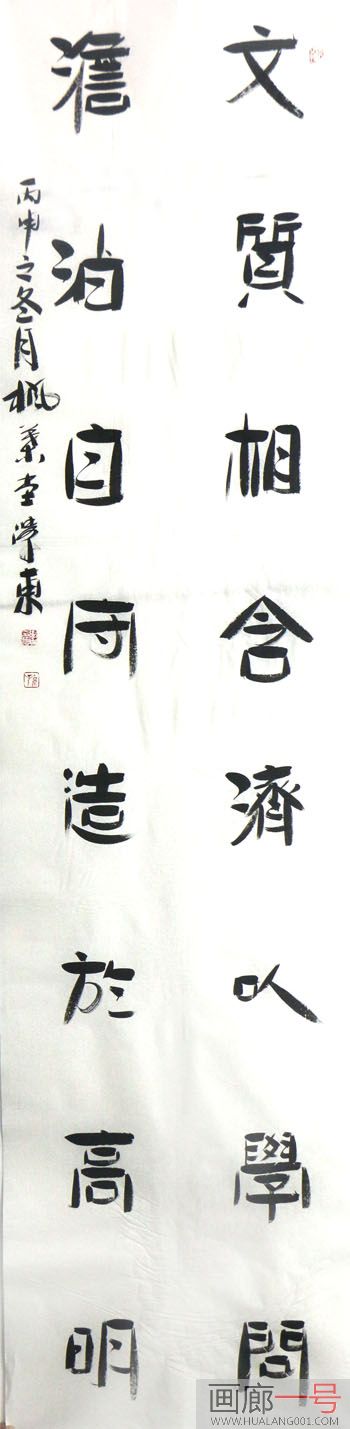 文質相含濟以學問
澹泊自守造於高明
丙申之冬月楓葉堂東
画廊一号
WWW.HUALANG001.COM